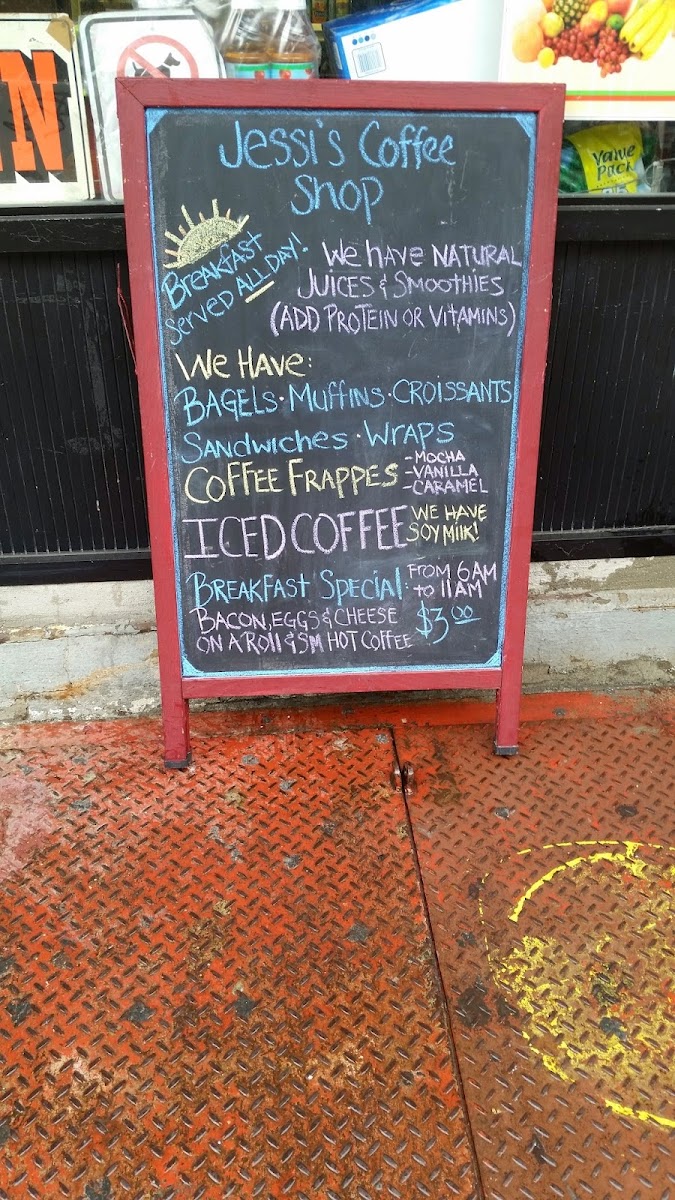 N
Value
Pack
Jessi's Coffee
Shop
Breakfast
Served ALL DAY!
We have NATURAL
JUICES & SMOOTHIES
(ADD PROTEIN OR VITAMINS)
We HAVE:
BAGELS · MUFFINS · CROISSANTS
SANDWICHES · WRAPS
COFFEE FRAPPES
-MOCHA
-VANILLA
-CARAMEL
ICED COFFEE
WE HAVE
SOY MILK!
BREAKFAST SPECIAL:
FROM 6AM
to 11AM
BACON, EGGS & CHEESE
ON A ROLL & SM HOT COFFEE
$3.00